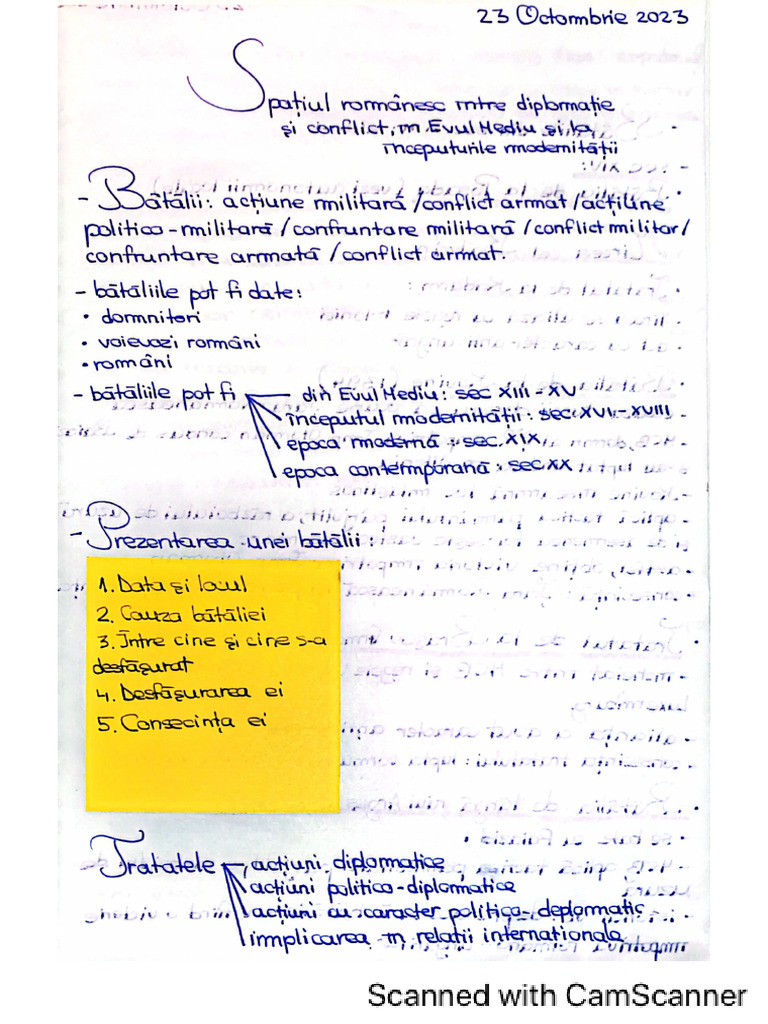 23 Octombrie 2023
Spațiul românesc între diplomație
și conflict, în Evul Mediu și la
începuturile modernității
- Bătălii: acțiune militară /conflict armat /acțiune
politico-militară /confruntare militară /conflict militar/
confruntare armată /conflict armat.
- bătăliile pot fi date:
• domnitori
• voievozi români
• români
- bătăliile pot fi din Evul Mediu: sec XIII-XV
începutul modernității: sec. XVI-XVIII
epoca modernă: sec. XIX
epoca contemporană: sec XX
- Prezentarea unei bătălii:
1. Data și locul
2. Cauza bătăliei
3. Între cine și cine s-a
desfășurat
4. Desfășurarea ei
5. Consecința ei
- Tratatele acțiuni diplomatice
acțiuni politico-diplomatice
acțiuni cu caracter politico-deplomatic
implicarea în relații internaționale
Scanned with CamScanner